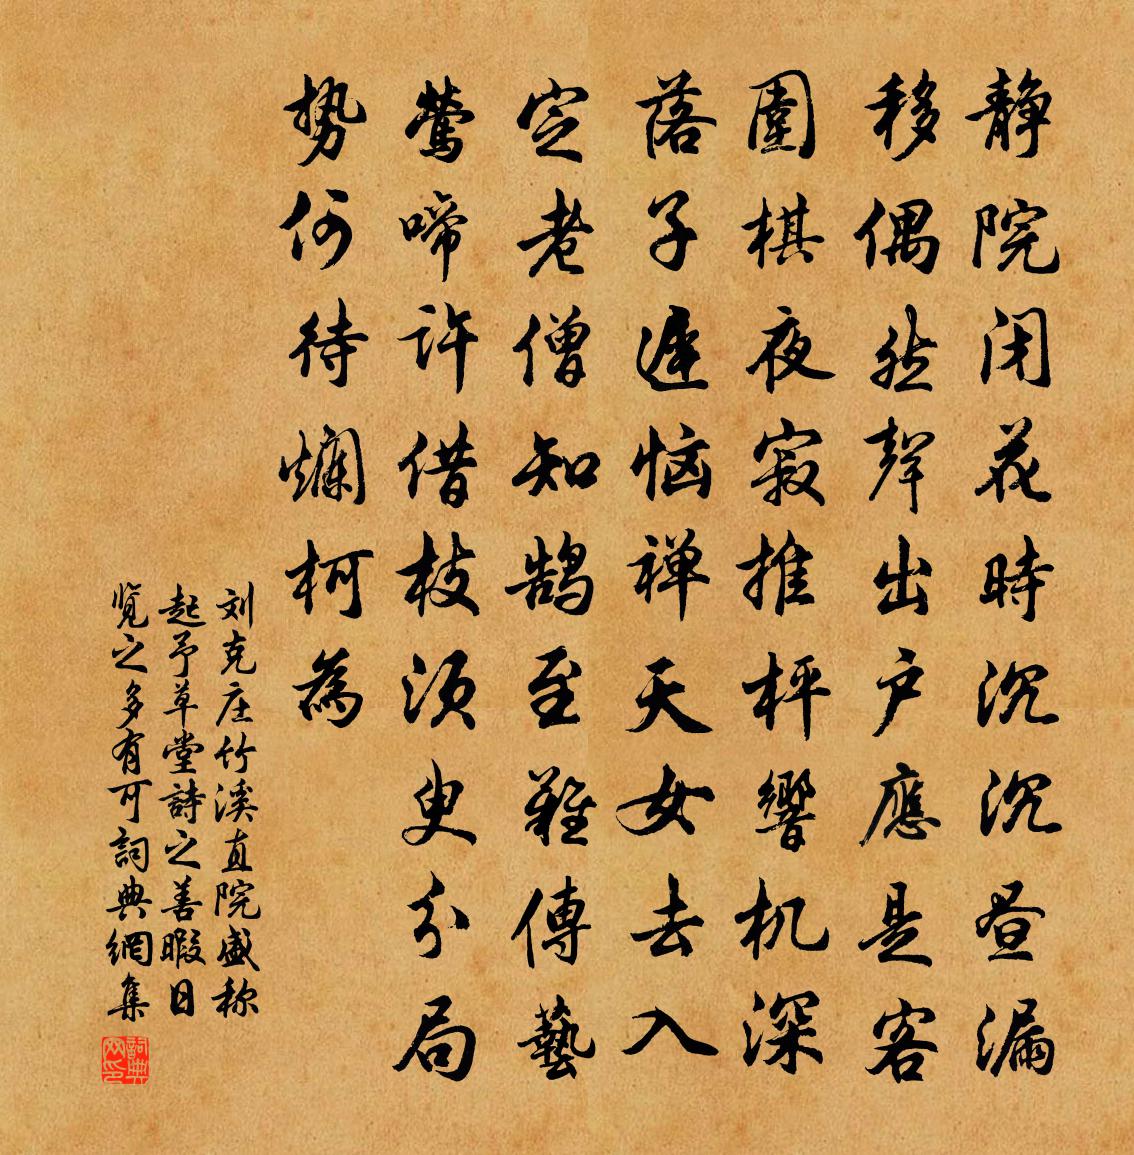 静院闭花時沉沉昼漏
移偶然聲出户應是客
圍棋夜寂推枰響机深
落子遲恼禅天女去入
定老僧知鹄至難傳藝
鶯啼許借枝須臾分局
势何待爛柯為
刘克庄竹溪直院盛称
起予草堂詩之善暇日
覧之多有可詞典網集
詞典网印